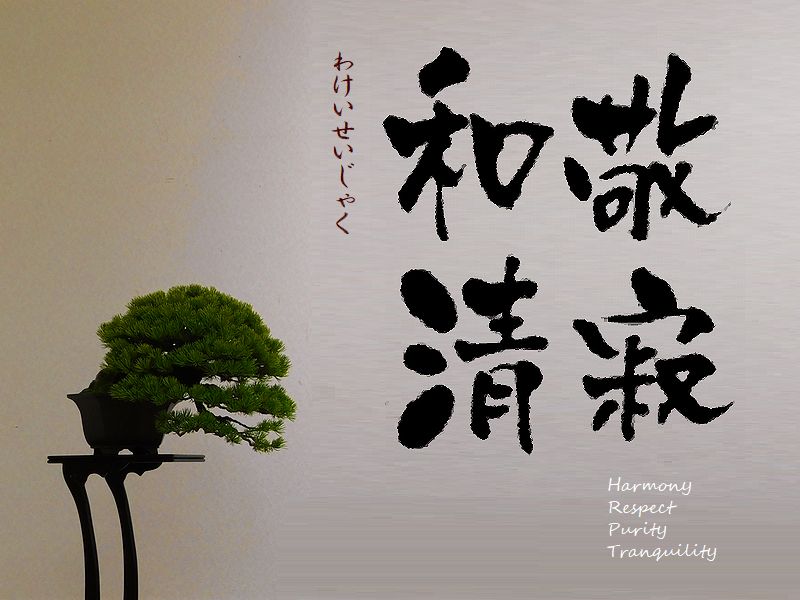 わけいせいじゃく
和敬
清寂
Harmony
Respect
Purity
Tranquility